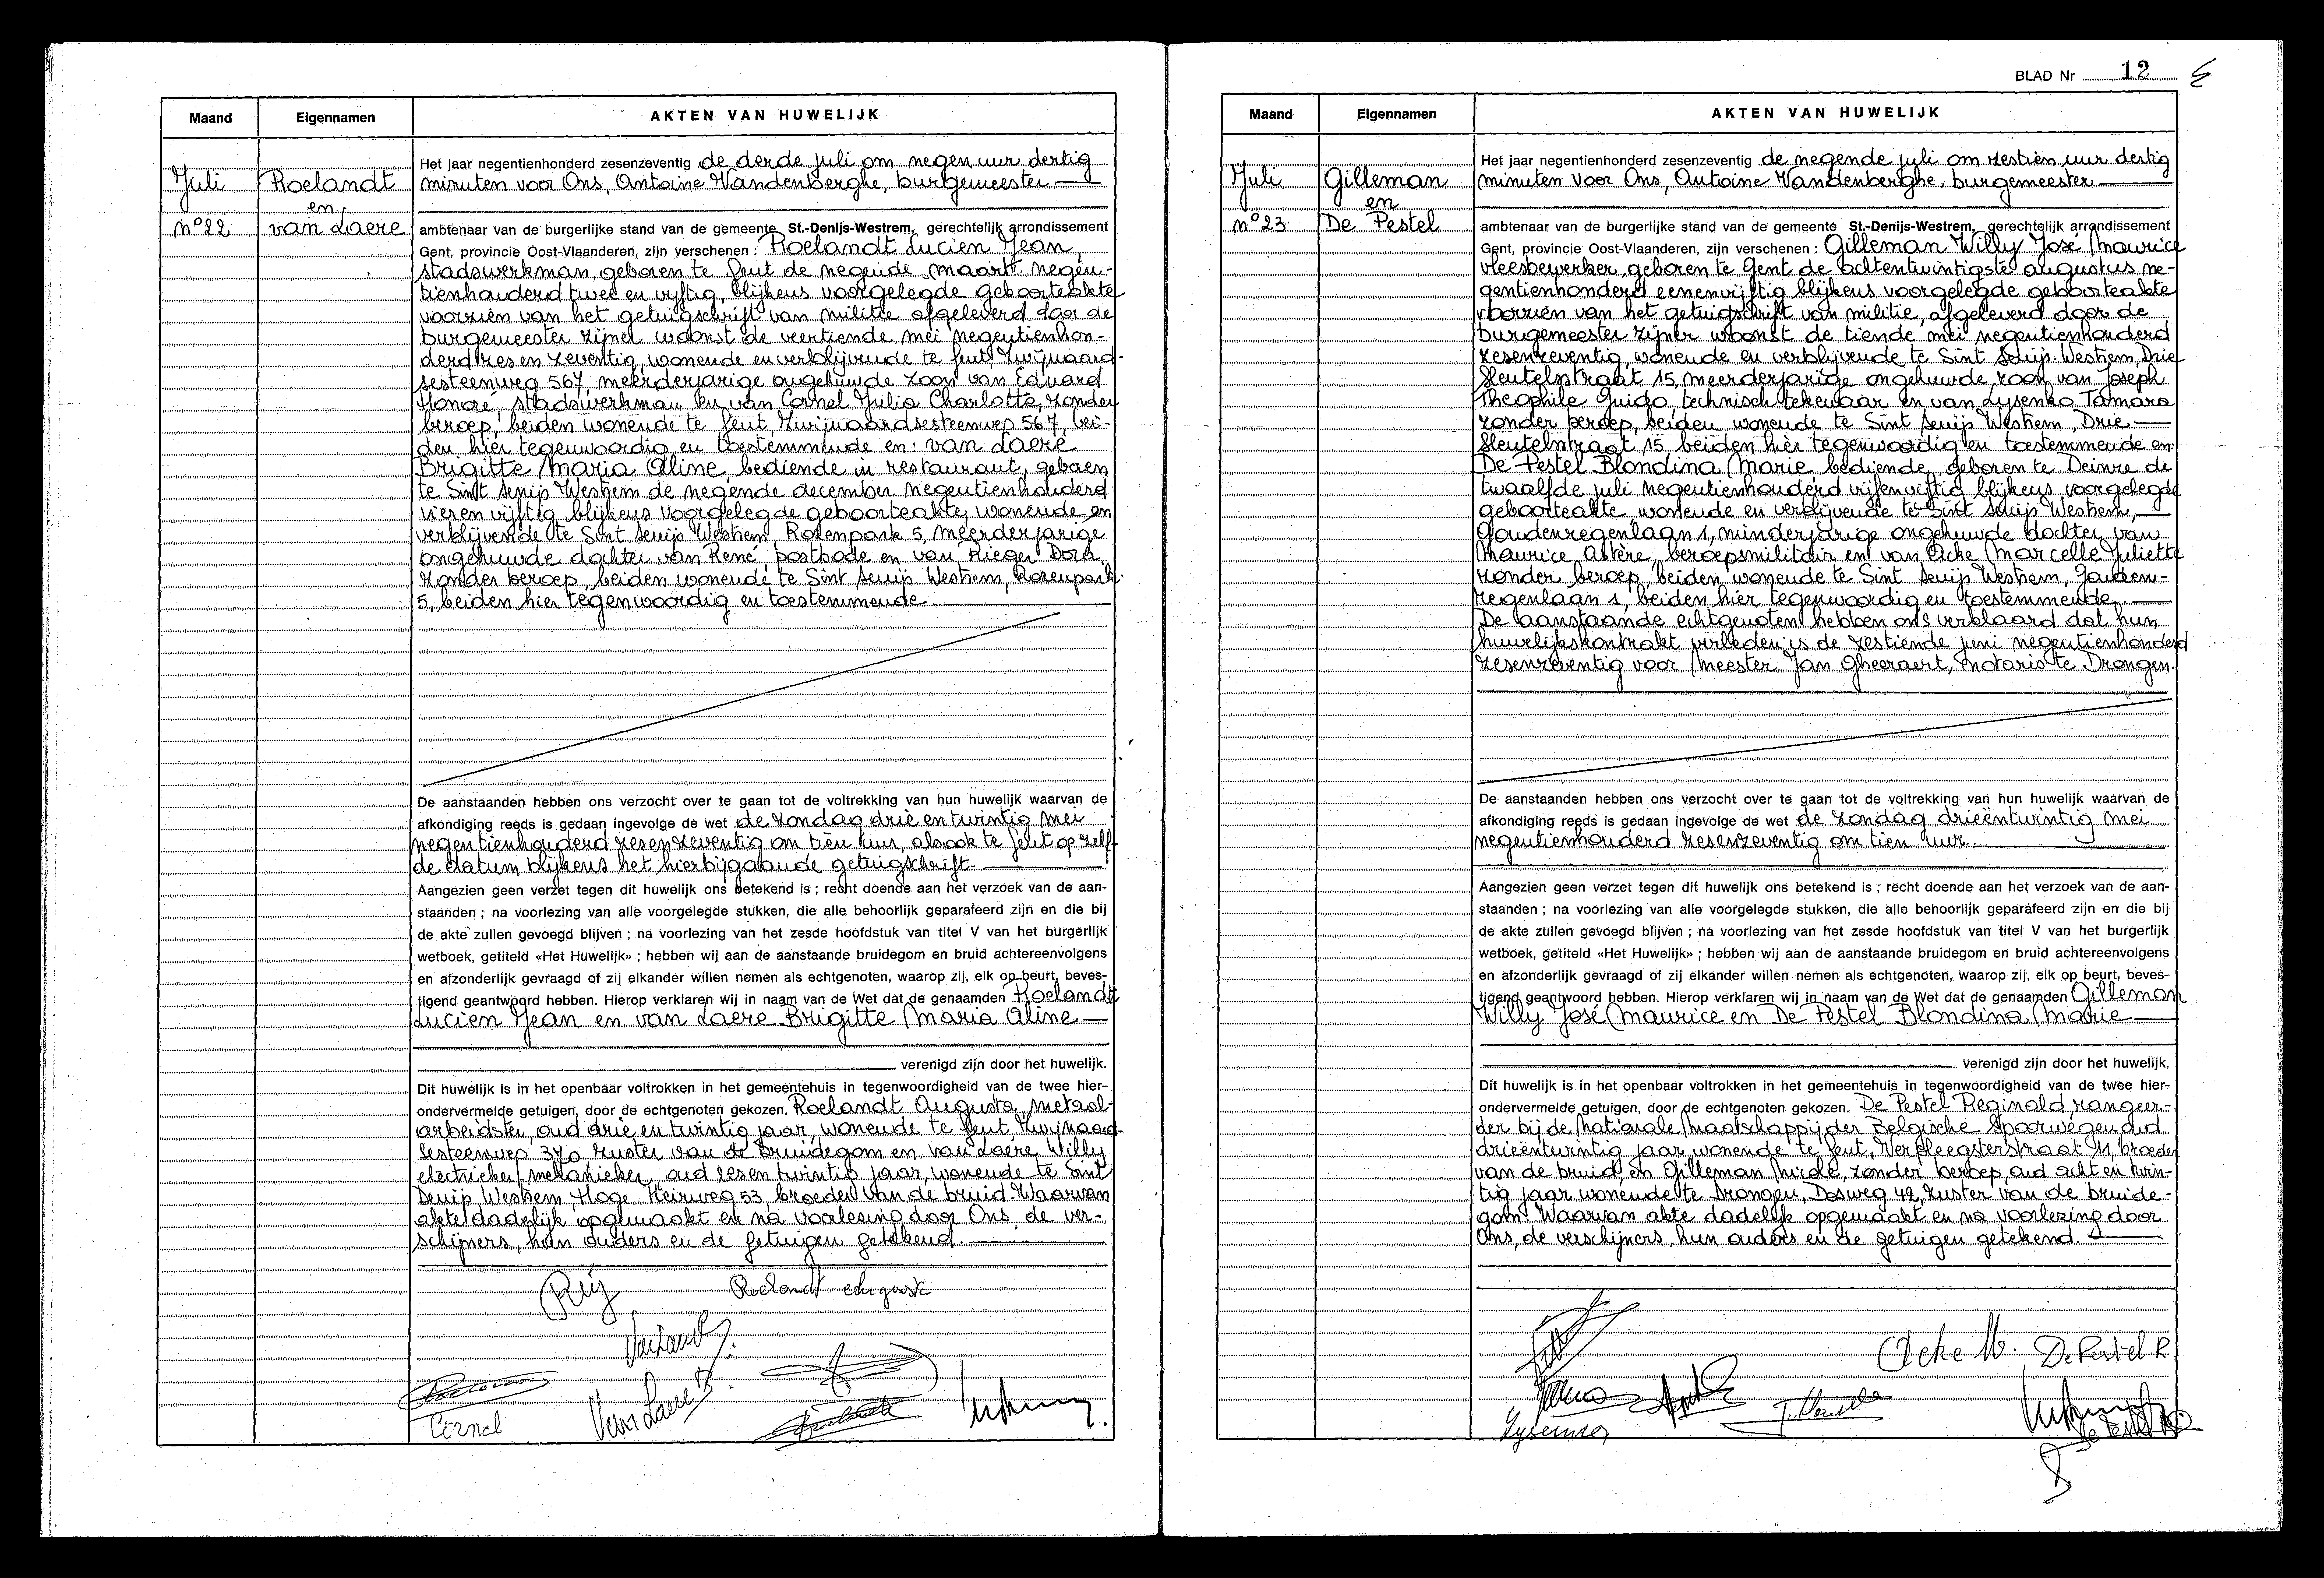 Maand
Eigennamen
AKTEN VAN HUWELIJK
Juli
Roelandt
en
nº22
van Laere
Het jaar negentienhonderd zesenzeventig de derde juli om negen uur dertig
minuten voor Ons, Antoine Vandenberghe, burgemeester
ambtenaar van de burgerlijke stand van de gemeente St.-Denijs-Westrem, gerechtelijk arrondissement
Gent, provincie Oost-Vlaanderen, zijn verschenen : Roelandt Lucien Jean,
stadswerkman, geboren te Gent de negende maart negen-
tienhonderd twee en vijftig, blijkens voorgelegde geboorteakte
voorzien van het getuigschrift van militie afgeleverd door de
burgemeester zijner woonst de veertiende mei negentienhon-
derd zes en zeventig, wonende en verblijvende te Gent, Zwijnaard-
sesteenweg 567, meerderjarige ongehuwde zoon van Eduard
Honoré, stadswerkman en van Cornel Julia Charlotte, zonder
beroep, beiden wonende te Gent, Zwijnaardsesteenweg 567, bei-
den hier tegenwoordig en toestemmende en: van Laere
Brigitte Maria Aline, bediende in restaurant, geboren
te Sint Denijs Westrem de negende december negentienhonderd
vierenvijftig blijkens voorgelegde geboorteakte, wonende en
verblijvende te Sint Denijs Westrem, Rozenpark 5, meerderjarige
ongehuwde dochter van René, postbode en van Rieger Dora,
zonder beroep, beiden wonende te Sint Denijs Westrem, Rozenpark
5, beiden hier tegenwoordig en toestemmende
De aanstaanden hebben ons verzocht over te gaan tot de voltrekking van hun huwelijk waarvan de
afkondiging reeds is gedaan ingevolge de wet de zondag drie en twintig mei
negentienhonderd zesenzeventig om tien uur, alsook te Gent op zelf-
de datum blijkens het hierbijgaande getuigschrift.
Aangezien geen verzet tegen dit huwelijk ons betekend is ; recht doende aan het verzoek van de aan-
staanden ; na voorlezing van alle voorgelegde stukken, die alle behoorlijk geparafeerd zijn en die bij
de akte zullen gevoegd blijven ; na voorlezing van het zesde hoofdstuk van titel V van het burgerlijk
wetboek, getiteld «Het Huwelijk» ; hebben wij aan de aanstaande bruidegom en bruid achtereenvolgens
en afzonderlijk gevraagd of zij elkander willen nemen als echtgenoten, waarop zij, elk op beurt, beves-
tigend geantwoord hebben. Hierop verklaren wij in naam van de Wet dat de genaamden Roelandt
Lucien Jean en van Laere Brigitte Maria Aline
verenigd zijn door het huwelijk.
Dit huwelijk is in het openbaar voltrokken in het gemeentehuis in tegenwoordigheid van de twee hier-
ondervermelde getuigen, door de echtgenoten gekozen. Roelandt Augusta, metaal-
arbeidster, oud drie en twintig jaar, wonende te Gent Zwijnaard-
sesteenweg 370 zuster van de bruidegom en van Laere Willy
electrieker mekanieker, oud zesentwintig jaar, wonende te Sint
Denijs Westrem, Hoge Heirweg 53, broeder van de bruid. Waarvan
akte dadelijk opgemaakt en na voorlezing door Ons, de ver-
schijners, hun ouders en de getuigen getekend.
Roelandt Augusta
Van Laere B.
Cornel
BLAD Nr 12
Maand
Eigennamen
AKTEN VAN HUWELIJK
Juli
Gilleman
en
nº23.
De Pestel
Het jaar negentienhonderd zesenzeventig de negende juli om zestien uur dertig
minuten voor Ons, Antoine Vandenberghe, burgemeester
ambtenaar van de burgerlijke stand van de gemeente St.-Denijs-Westrem, gerechtelijk arrondissement
Gent, provincie Oost-Vlaanderen, zijn verschenen : Gilleman Willy José Maurice
vleesbewerker, geboren te Gent de achtentwintigste augustus ne-
gentienhonderd eenenvijftig blijkens voorgelegde geboorteakte
voorzien van het getuigschrift van militie, afgeleverd door de
burgemeester zijner woonst de tiende mei negentienhonderd
zesenzeventig, wonende en verblijvende te Sint Denijs-Westrem, Drie
Sleutelsstraat 15, meerderjarige ongehuwde zoon van Joseph
Theophile Guido, technisch tekenaar en van Lysenko Tamara
zonder beroep, beiden wonende te Sint Denijs Westrem, Drie
Sleutelstraat 15 beiden hier tegenwoordig en toestemmende en:
De Pestel Blondina Marie bediende, geboren te Deinze de
twaalfde juli negentienhonderd vijfenvijftig blijkens voorgelegde
geboorteakte, wonende en verblijvende te Sint Denijs Westrem,
Goudenregenlaan 1, minderjarige ongehuwde dochter van
Maurice Astère, beroepsmilitair en van Acke Marcelle Juliette
zonder beroep, beiden wonende te Sint Denijs Westrem, Gouden-
regenlaan 1, beiden hier tegenwoordig en toestemmende.
De aanstaande echtgenoten hebben ons verklaard dat hun
huwelijkskontrakt verleden is de zestiende juni negentienhonderd
zesenzeventig voor Meester Jan Gheeraert, notaris te Drongen.
De aanstaanden hebben ons verzocht over te gaan tot de voltrekking van hun huwelijk waarvan de
afkondiging reeds is gedaan ingevolge de wet de zondag drieëntwintig mei
negentienhonderd zesenzeventig om tien uur.
Aangezien geen verzet tegen dit huwelijk ons betekend is ; recht doende aan het verzoek van de aan-
staanden ; na voorlezing van alle voorgelegde stukken, die alle behoorlijk geparafeerd zijn en die bij
de akte zullen gevoegd blijven ; na voorlezing van het zesde hoofdstuk van titel V van het burgerlijk
wetboek, getiteld «Het Huwelijk» ; hebben wij aan de aanstaande bruidegom en bruid achtereenvolgens
en afzonderlijk gevraagd of zij elkander willen nemen als echtgenoten, waarop zij, elk op beurt, beves-
tigend geantwoord hebben. Hierop verklaren wij in naam van de Wet dat de genaamden Gilleman
Willy José Maurice en De Pestel Blondina Marie
verenigd zijn door het huwelijk.
Dit huwelijk is in het openbaar voltrokken in het gemeentehuis in tegenwoordigheid van de twee hier-
ondervermelde getuigen, door de echtgenoten gekozen. De Pestel Reginald, rangeer-
der bij de Nationale Maatschappij der Belgische Spoorwegen oud
drieëntwintig jaar, wonende te Gent, Verpleegsterstraat 11, broeder
van de bruid, en Gilleman Nicole, zonder beroep, oud acht en twin-
tig jaar wonende te Drongen, Dosweg 42, zuster van de bruide-
gom. Waarvan akte dadelijk opgemaakt en na voorlezing door
Ons, de verschijners, hun ouders en de getuigen getekend.
Acke M.
De Pestel R.